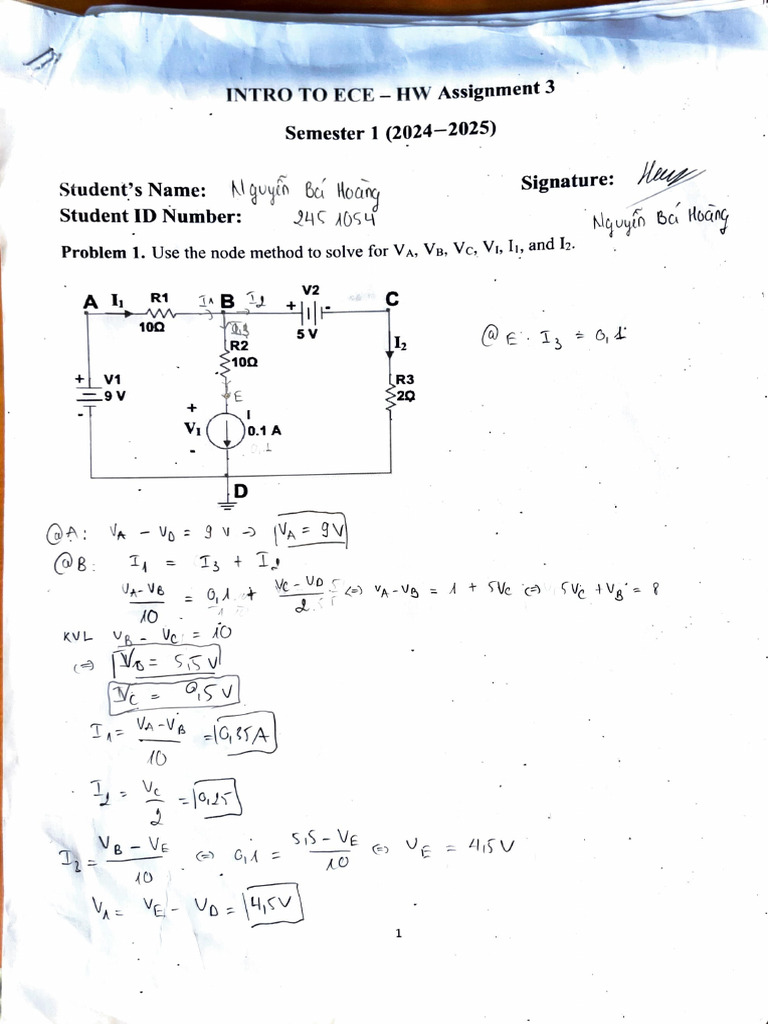 INTRO TO ECE – HW Assignment 3
Semester 1 (2024–2025)
Student's Name: Nguyễn Bá Hoàng
Signature:
Student ID Number: 2451054
Nguyễn Bá Hoàng
Problem 1. Use the node method to solve for VA, VB, VC, VI, I1, and I2.
A I1 R1 I1 B I2 V2 C
10Ω + - 5 V
0,1
R2
10Ω
I2
@ E : I3 = 0,1
+ V1 9 V -
E
R3
2Ω
+ VI - I
0.1 A
0.1
D
@A: VA - VD = 9V → VA = 9V
@B: I1 = I3 + I2
(VA-VB)/10 = 0,1 + (VC - VD)/2 ⇔ VA-VB = 1 + 5VC ⇔ 5VC + VB = 8
KVL VB - VC = 10
⇔ VB = 5,5V
VC = 0,5V
I1 = (VA-VB)/10 = 0,35A
I2 = VC/2 = 0,25
I2 = (VB - VE)/10 ⇔ 0,1 = (5,5 - VE)/10 ⇔ VE = 4,5V
V1 = VE - VD = 4,5V
1